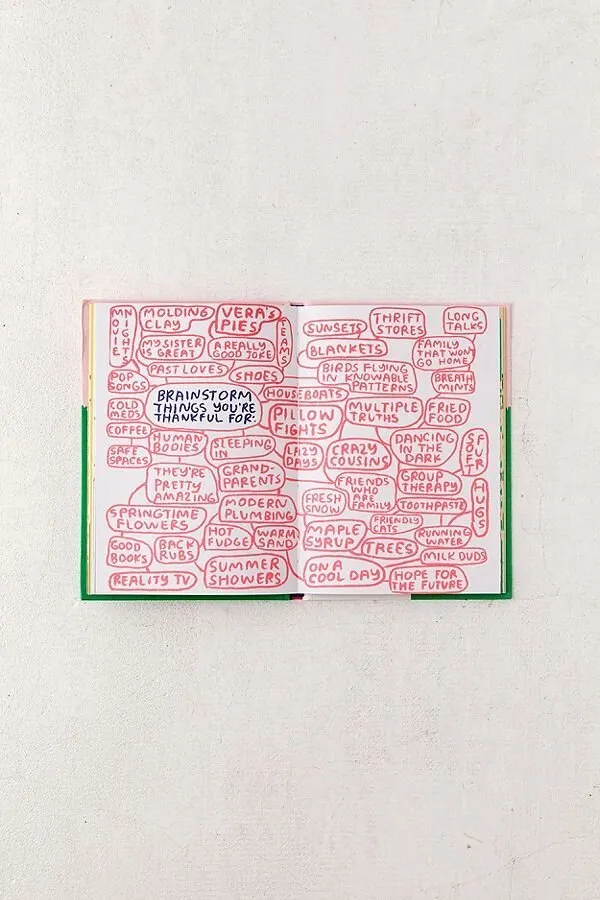 MOVIE
NIGHTS
MOLDING
CLAY
VERA'S
PIES
TEAMS
MY SISTER
IS GREAT
A REALLY
GOOD JOKE
PAST LOVES
SHOES
POP
SONGS
BRAINSTORM
THINGS YOU'RE
THANKFUL FOR:
COLD
MEDS
COFFEE
SAFE
SPACES
HUMAN
BODIES
THEY'RE
PRETTY
AMAZING
SLEEPING
IN
GRAND-
PARENTS
LAZY
DAYS
MODERN
PLUMBING
SPRINGTIME
FLOWERS
HOT
FUDGE
WARM
SAND
GOOD
BOOKS
BACK
RUBS
REALITY TV
SUMMER
SHOWERS
HOUSEBOATS
PILLOW
FIGHTS
SUNSETS
THRIFT
STORES
LONG
TALKS
BLANKETS
FAMILY
THAT WON'T
GO HOME
BIRDS FLYING
IN KNOWABLE
PATTERNS
BREATH
MINTS
MULTIPLE
TRUTHS
FRIED
FOOD
CRAZY
COUSINS
DANCING
IN THE
DARK
SOFT
FUR
FRIENDS
WHO
ARE
FAMILY
GROUP
THERAPY
HUGS
FRESH
SNOW
TOOTHPASTE
FRIENDLY
CATS
RUNNING
WATER
MAPLE
SYRUP
TREES
MILK DUDS
ON A
COOL DAY
HOPE FOR
THE FUTURE